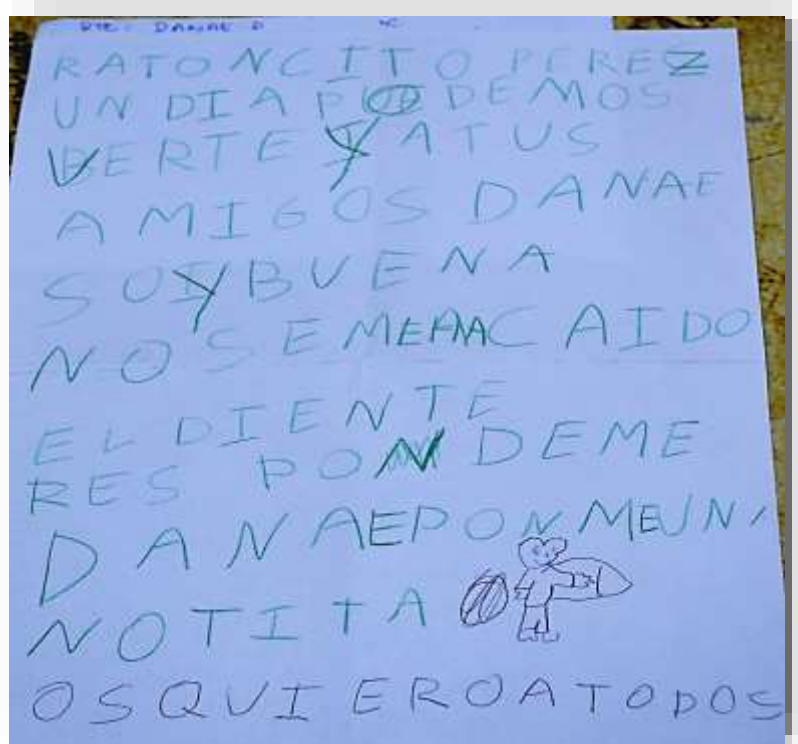 RTE: DANAE D
RATONCITO PEREZ
UN DIA PODEMOS
VERTE Y A TUS
AMIGOS DANAE
SOY BUENA
NO SE ME HA CAIDO
EL DIENTE
RESPONDEME
DANAE PONME UN
NOTITA
OS QUIERO A TODOS